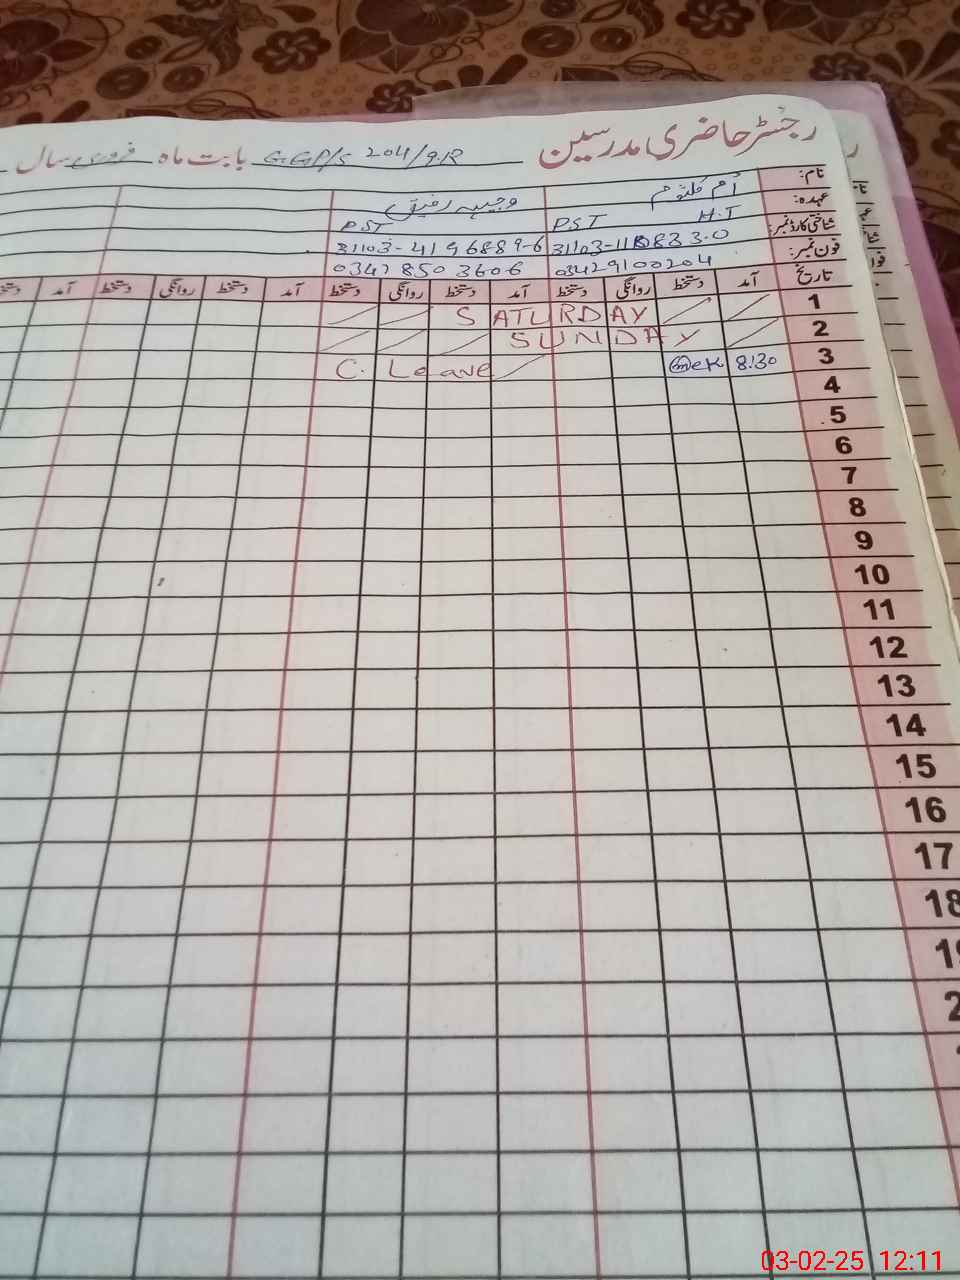 رجسٹر حاضری مدرسین G.GP/S 204/9.R بابت ماہ فروری سال
نام: اُم کلثوم وجیہہ رفیق
عہدہ: PST H.T PST
شناختی کارڈ نمبر: 31103-4196889-6
فون نمبر: 03429100204 0347 850 3606
تاریخ آمد دستخط روانگی دستخط آمد دستخط روانگی دستخط آمد دستخط روانگی دستخط آمد
1 SATURDAY
2 SUNDAY
3 8:30 C. Leave
4
5
6
7
8
9
10
11
12
13
14
15
16
17
18
03-02-25 12:11